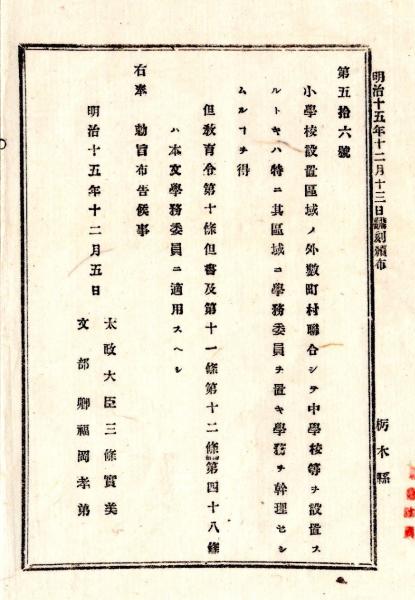 明治十五年十二月十三日飜刻頒布
栃木縣
第五拾六號
小學校設置區域ノ外數町村聯合シテ中學校等ヲ設置ス
ルトキハ特ニ其區域ニ學務委員ヲ置キ學務ヲ幹理セシ
ムルヿヲ得
但敎育令第十條但書及第十一條第十二條第四十八條
ハ本文學務委員ニ適用スヘシ
右奉 勅旨布告候事
明治十五年十二月五日
太政大臣三條實美
文部卿福岡孝弟